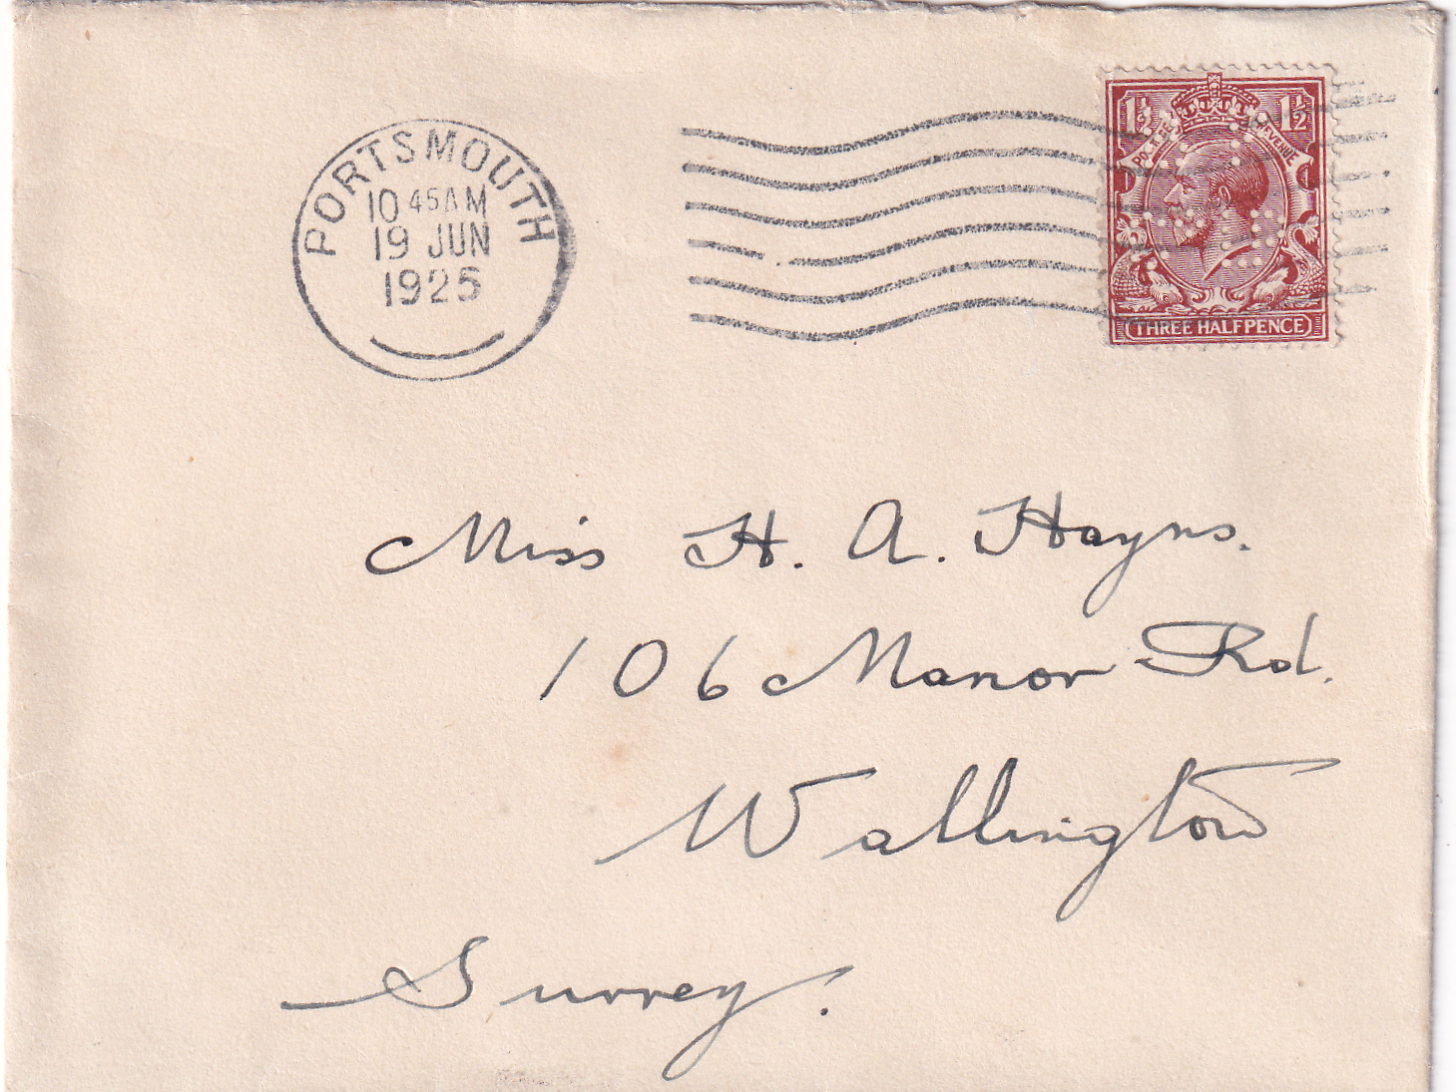 PORTSMOUTH
10 45 AM
19 JUN
1925
1½ 1½
POSTAGE REVENUE
THREE HALFPENCE
Miss H. A. Hayns.
106 Manor Rd.
Wallington
Surrey.